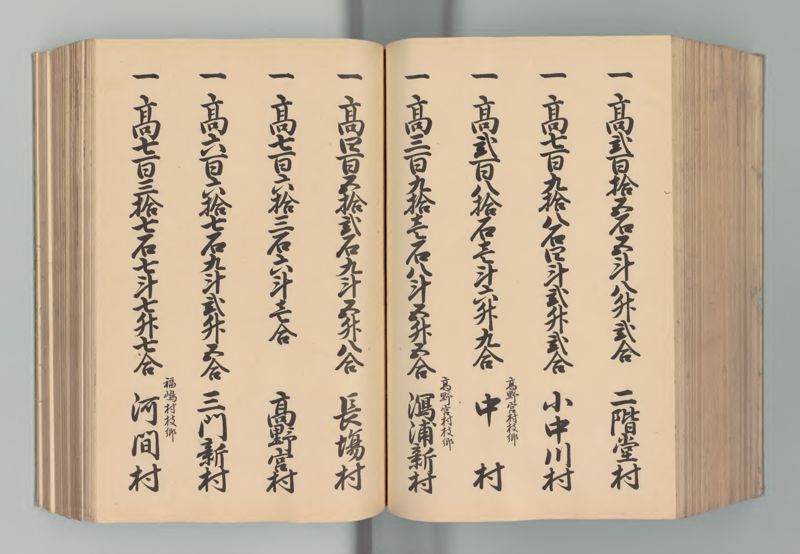 一 高弐百拾五石五斗八升弐合 二階堂村
一 高七百九拾八石四斗弐升弐合 小中川村
一 高弐百八拾石壱斗六升九合 中村
高野宮村枝郷
一 高三百九拾壱石八斗五升五合 潟浦新村
高野宮村枝郷
一 高四百五拾弐石九斗五升八合 長塲村
一 高七百六拾三石六斗壱合 高野宮村
一 高六百六拾七石九斗弐升五合 三門新村
一 高七百三拾七石七斗七升七合 河間村
福嶋村枝郷